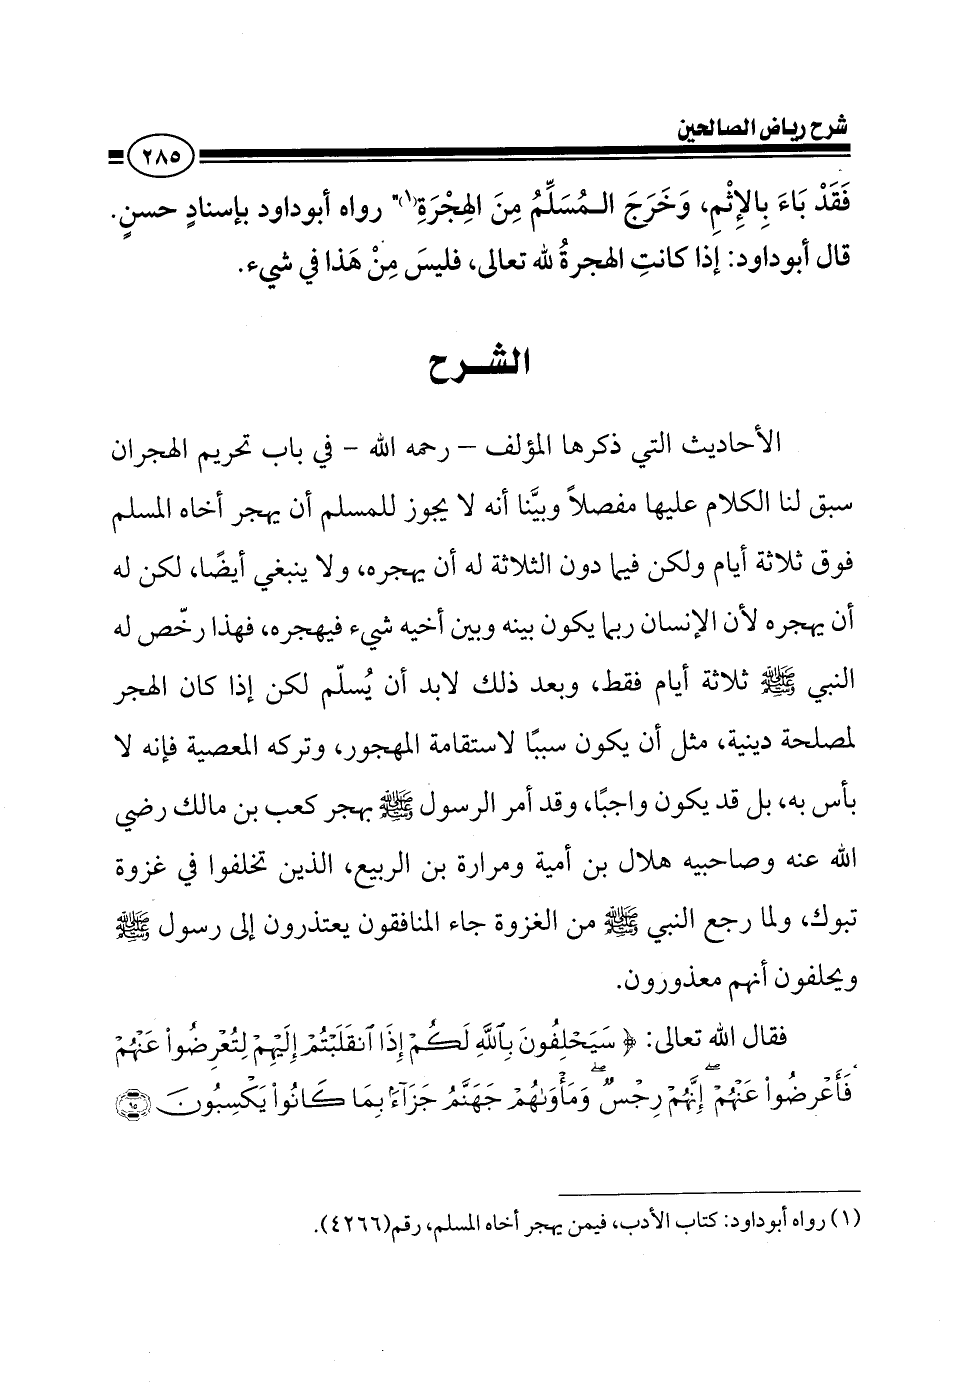 شرح رياض الصالحين
٢٨٥
فَقَدْ بَاءَ بِالإِثْمِ، وَخَرَجَ الـمُسَلِّمُ مِنَ الهِجْرَةِ(١)" رواه أبوداود بإسنادٍ حسنٍ.
قال أبوداود: إذا كانتِ الهجرةُ لله تعالى، فليسَ مِنْ هَذا في شيء.
الشـرح
الأحاديث التي ذكرها المؤلف – رحمه الله – في باب تحريم الهجران
سبق لنا الكلام عليها مفصلاً وبيَّنا أنه لا يجوز للمسلم أن يهجر أخاه المسلم
فوق ثلاثة أيام ولكن فيما دون الثلاثة له أن يهجره، ولا ينبغي أيضًا، لكن له
أن يهجره لأن الإنسان ربما يكون بينه وبين أخيه شيء فيهجره، فهذا رخّص له
النبي ﷺ ثلاثة أيام فقط، وبعد ذلك لابد أن يُسلّم لكن إذا كان الهجر
لمصلحة دينية، مثل أن يكون سببًا لاستقامة المهجور، وتركه المعصية فإنه لا
بأس به، بل قد يكون واجبًا، وقد أمر الرسول ﷺ بهجر كعب بن مالك رضي
الله عنه وصاحبيه هلال بن أمية ومرارة بن الربيع، الذين تخلفوا في غزوة
تبوك، ولما رجع النبي ﷺ من الغزوة جاء المنافقون يعتذرون إلى رسول ﷺ
ويحلفون أنهم معذورون.
فقال الله تعالى: ﴿ سَيَحْلِفُونَ بِٱللَّهِ لَكُمْ إِذَا ٱنقَلَبْتُمْ إِلَيْهِمْ لِتُعْرِضُوا۟ عَنْهُمْ
فَأَعْرِضُوا۟ عَنْهُمْ ۖ إِنَّهُمْ رِجْسٌ ۖ وَمَأْوَىٰهُمْ جَهَنَّمُ جَزَآءًۢ بِمَا كَانُوا۟ يَكْسِبُونَ ٩٥
(١) رواه أبوداود: كتاب الأدب، فيمن يهجر أخاه المسلم، رقم(٤٢٦٦).